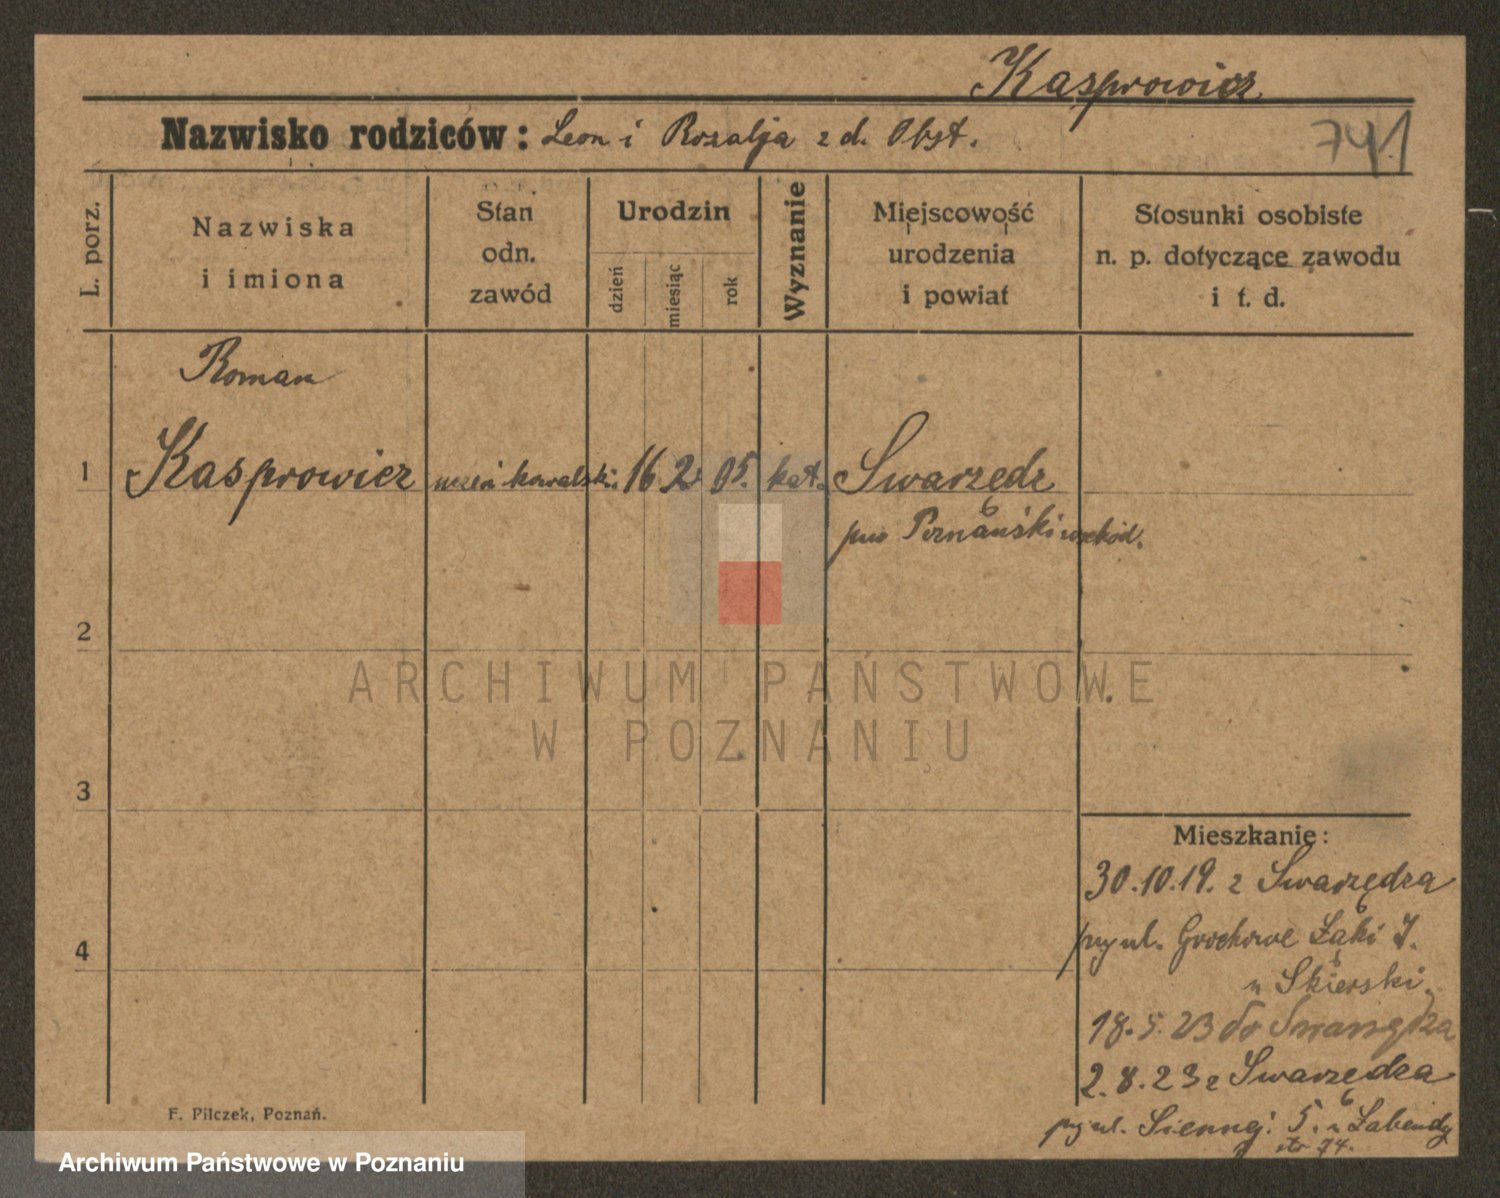 Kasprowicz
Nazwisko rodziców: Leon i Rozalja z d. Obst.
741
L. porz.
Nazwiska
i imiona
Stan
odn.
zawód
Urodzin
dzień
miesiąc
rok
Wyznanie
Miejscowość
urodzenia
i powiat
Stosunki osobiste
n. p. dotyczące zawodu
i t. d.
Roman
1 Kasprowicz uczeń kowalski. 16 2 05. kat. Swarzędz
pow Poznański wschód.
2
ARCHIWUM PAŃSTWOWE
W POZNANIU
3
Mieszkanie:
30.10.19. z Swarzędza
4
przy ul. Grochowe Łąki 7.
u Skierski.
18.5.23 do Swarzędza
2.8.23 z Swarzędza
przy ul. Siennej 5. u Łabendy
str 74.
F. Pilczek, Poznań.
Archiwum Państwowe w Poznaniu